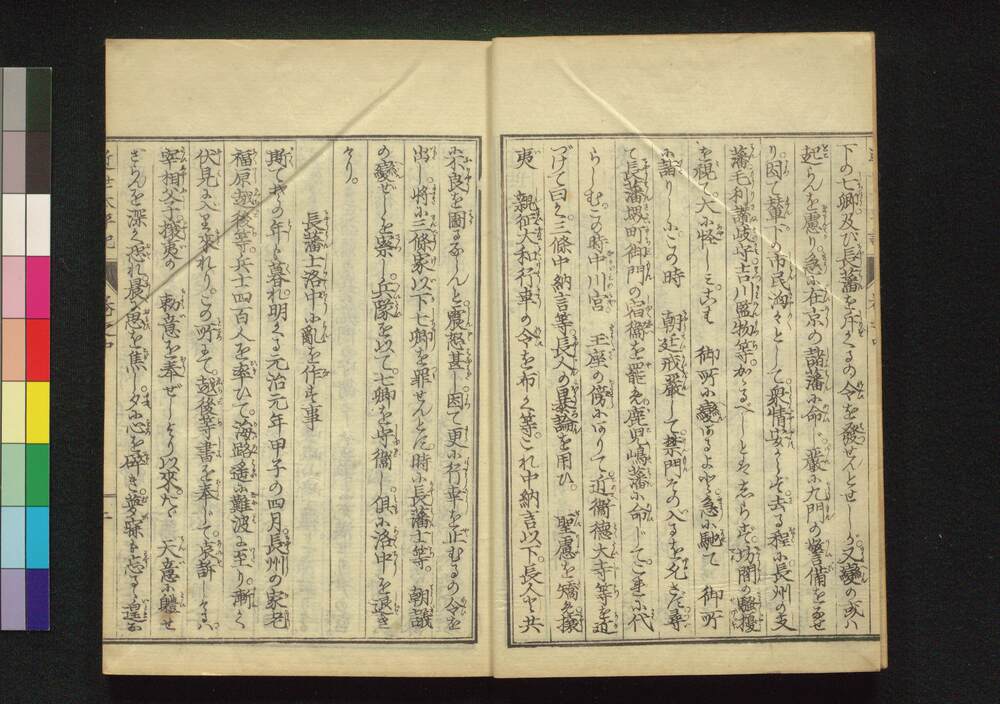 下の七卿及び長藩を斥くるの令を發せんとせしが又變の或ハ
起らんを慮り急に在京の諸藩に命じ嚴に九門の警備をなさせ
り因て輦下の市民洶々として衆情安からず去る程に長州の支
藩毛利讃岐守吉川監物等かかるべしとはしらず坊間の騷擾
を視て大に怪しミこハ 御所に變あるよやと急に馳て 御所
に詣りしにこの時 朝廷戒嚴して禁門その入るを允さず尋
て長藩堺町御門の宿衛を罷め鹿児嶋藩に命じてこれに代
らしむこの時中川宮 王座の傍にありて近衛徳大寺等を道
づけて曰く三條中納言等長人の暴論を用ひ 聖慮を矯め攘
夷 親征大和行幸の令を布く等これ中納言以下長人と共
に不良を圖るならんと震怒甚し因て更に行幸を止むるの令を
出し將に三條家以下七卿を罪せんとす時に長藩士等 朝議
の變ぜしを察し兵隊を以て七卿を守衛し俱に洛中を退き
けり
長藩士洛中に亂を作す事
斯てその年も暮れ明くる元治元年甲子の四月長州の家老
福原越後等兵士四百人を率ひて海路遙に難波に至り漸く
伏見にハ来れりこの所にて越後等書を奉じて哀訴しけるハ
宰相父子攘夷の 勅意を奉ぜしより以來たゞ 天意に軆せ
ざらんを深く恐れ晨に思を焦し夕に心を碎き夢寐も忘るゝ遑な